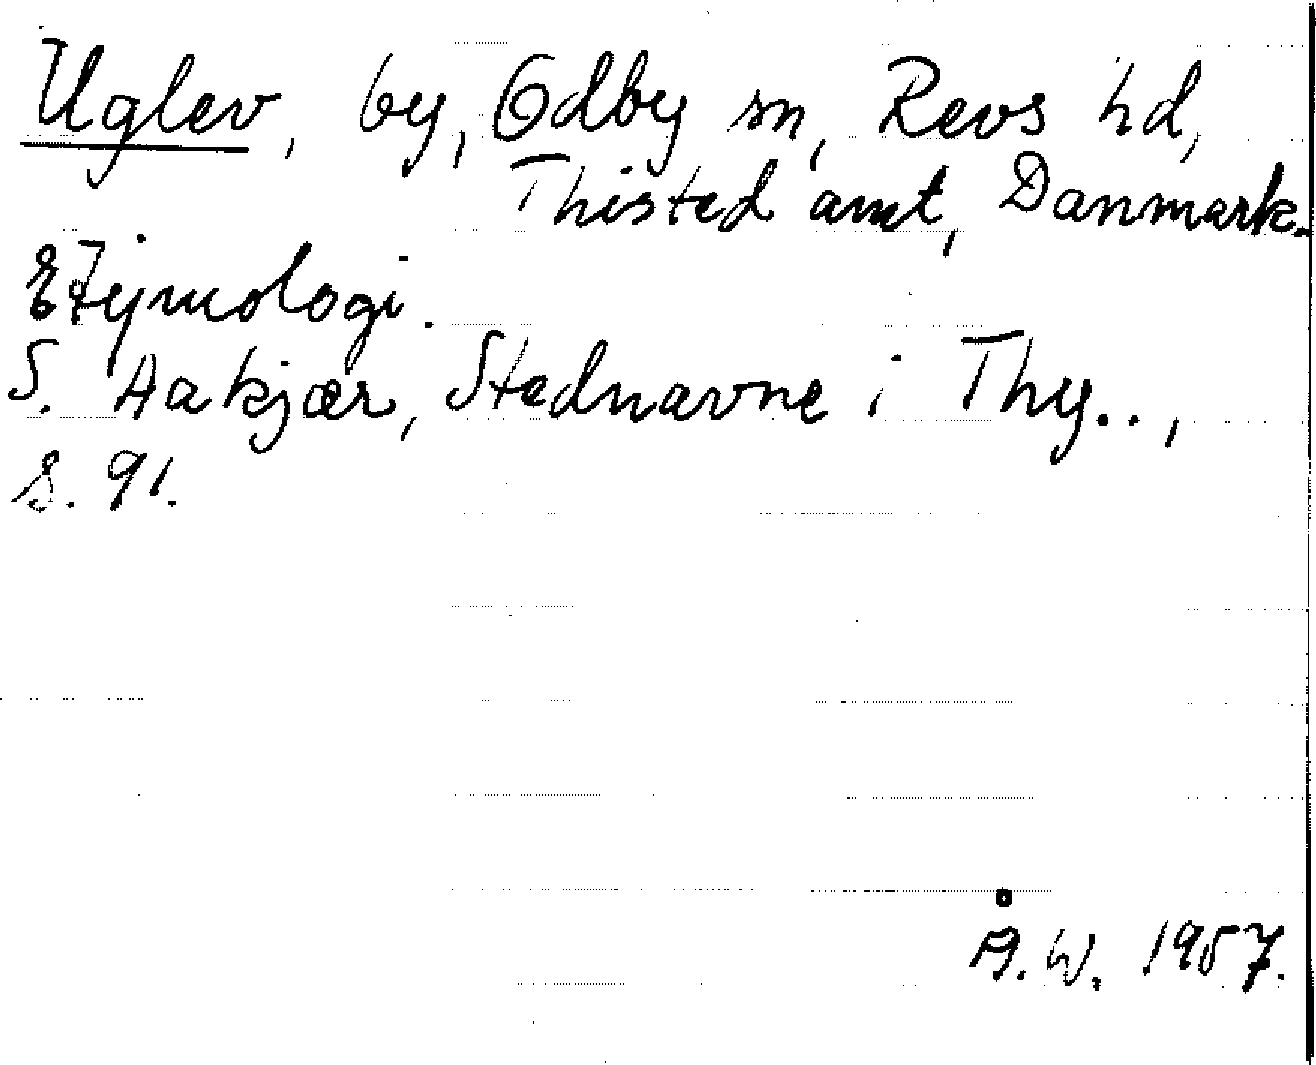 Uglev, by, Odby sn, Revs hd,
Thisted amt, Danmark.
Etymologi.
S. Aakjær, Stednavne i Thy..,
s. 91.
Å.W. 1957.